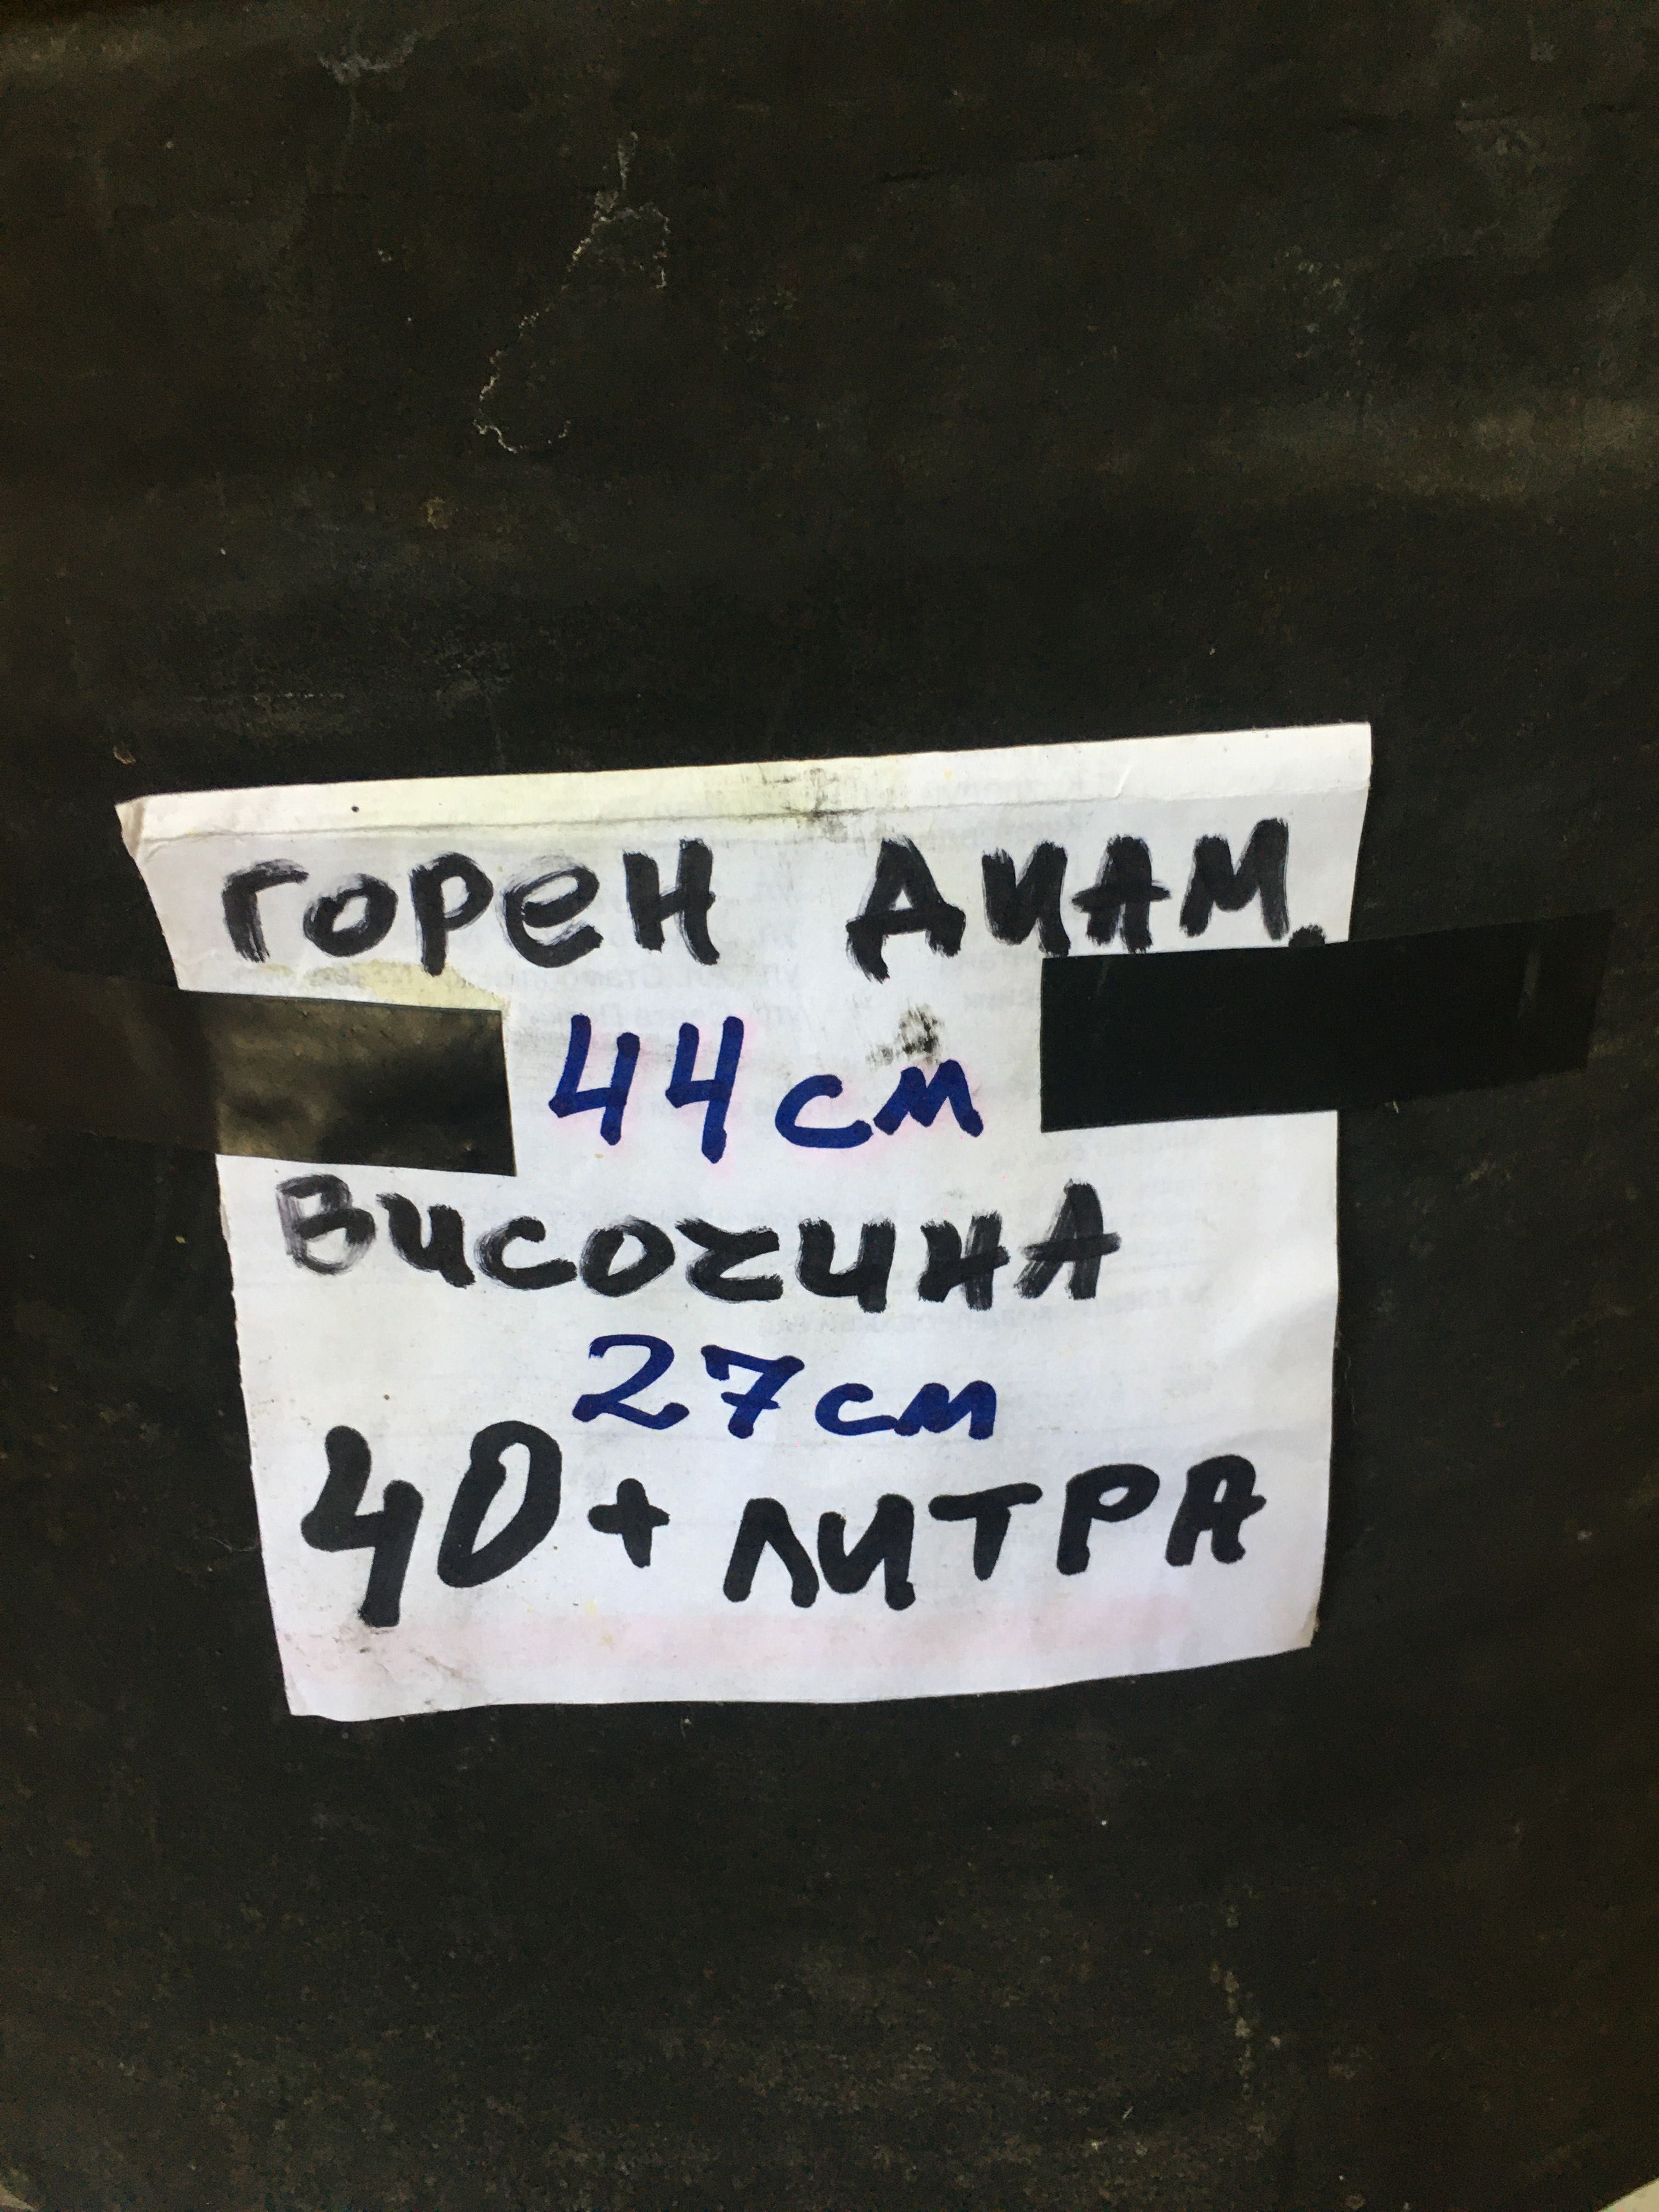 ГОРЕН ДИАМ.
44 см
ВИСОЧИНА
27 см
40+ ЛИТРА